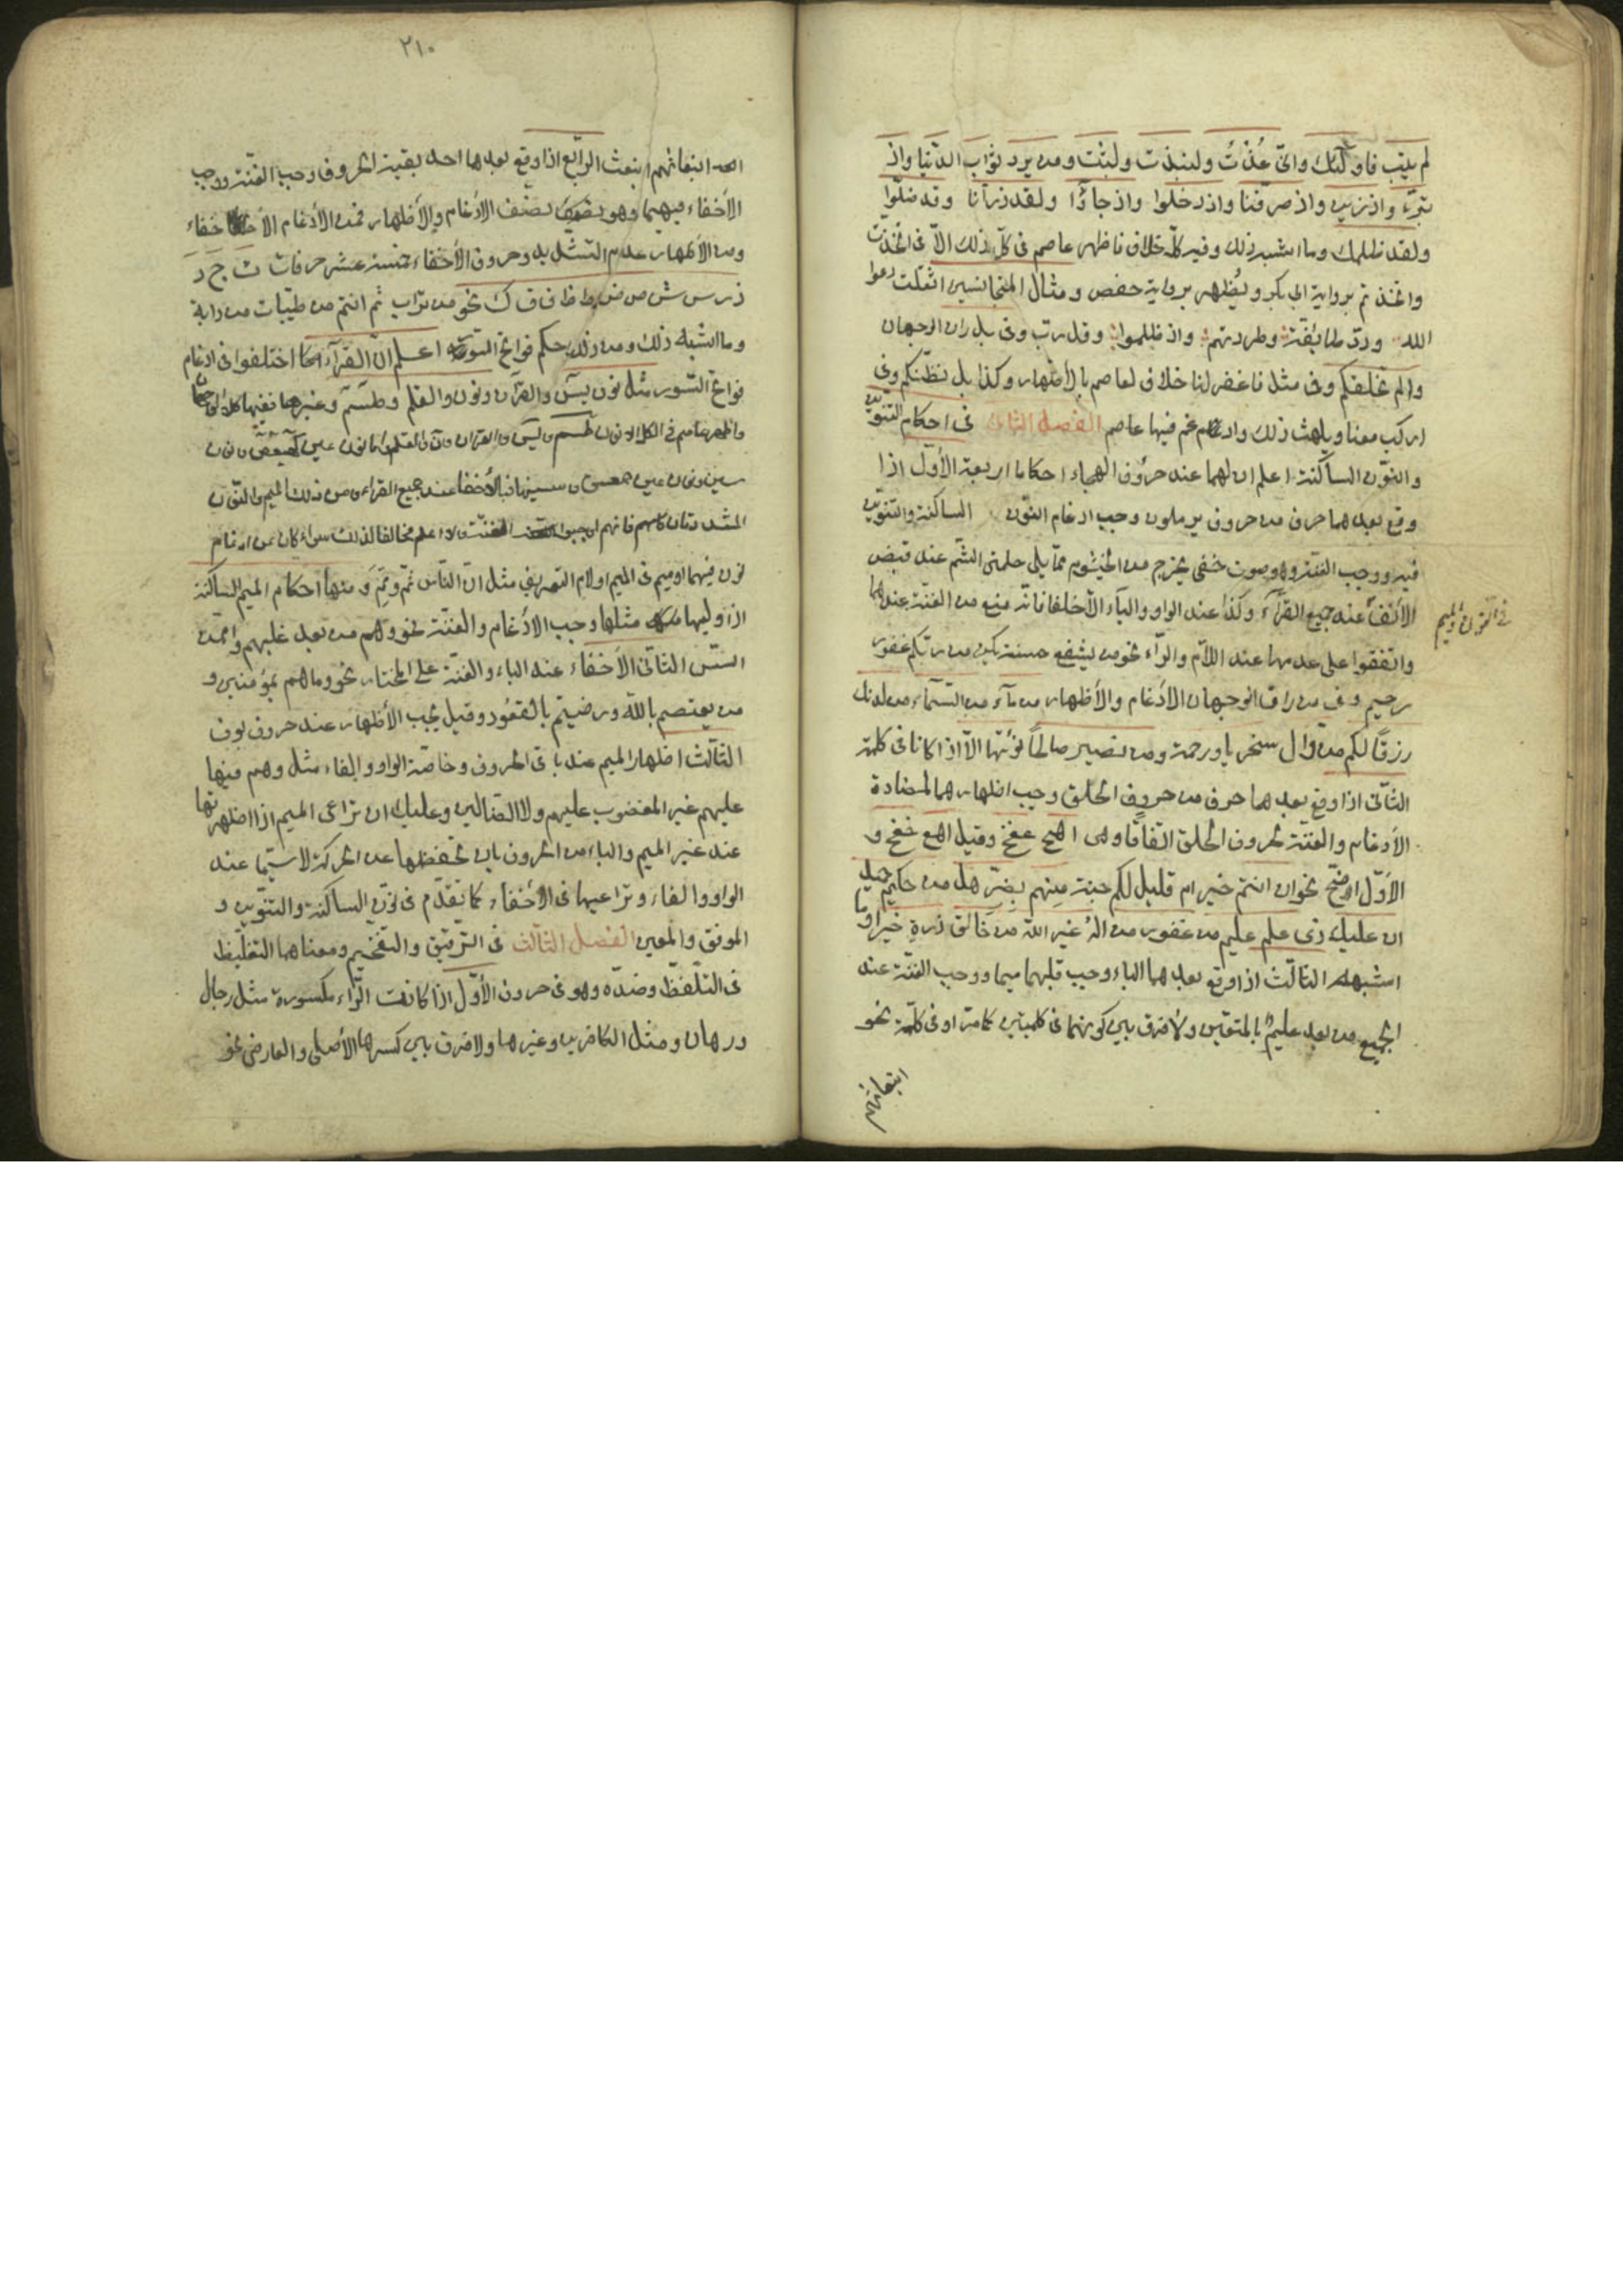 لم يتب فاولئك وانى عُذْتُ ولنبذت ولبثت ومن يرد ثواب الدنيا واذ
تبرّا واذ زين واذ صرفنا واذ دخلوا واذ جاؤا ولقد ذرأنا وقد ضلّوا
ولقد ظلمك وما اشبه ذلك وفيه كلّه خلاف فاظهر عاصم فى كلّ ذلك الّا فى اتخذت
واتخذتم برواية ابى بكر ويُظهر برواية حفص ومثال المتجانسين اثقلت دعوا
الله ودّت طائفة وطردتهم واذ ظلموا وقل رب وفى بل ران الوجهان
والم نخلقكم وفى مثل فاغفر لنا خلاف لعاصم بالأظهار وكذا بل نظنّكم وفى
اركب معنا ويلهث ذلك وادغم فيها عاصم الفصل الثانى فى احكام التنوين
والنون الساكنة اعلم ان لهما عند حروف الهجاء احكاما اربعة الأوّل اذا
وقع بعدهما حرف من حروف يرملون وجب ادغام النون الساكنة والتنوين
فيه ووجب الغنة وهو صوت خفى يخرج من الخيشوم ممّا يلى حلمتى الشم عند قبض
الأنف عند جميع القرّاء وكذا عند الواو والياء الّا خلفا فانه منع من الغنة عندهما
فى النون والميم
واتفقوا على عدمها عند اللام والراء نحو من يشفع حسنة يكن من ربكم غفور
رحيم وفى من راق الوجهان الادغام والأظهار من ماء من السماء من لدنك
رزقًا لكم من وال سخريا ورحمة ومن نصير صالحًا نؤتها الّا اذا كانا فى كلمة
الثانى اذا وقع بعدهما حرف من حروف الحلق وجب اظهارهما لمضادة
الأدغام والغنة لحروف الحلق اتفاقا وهى اهح عغخ وقيل اهع حغخ و
الأوّل اوضح نحو ان انتم خير ام قليل لكم جنة منهم بضرّ هل من حكيم حميد
ان عليك ذى علم عليم من غفور من اله غير الله من خالق ذرة خيرا وما
اشبهه الثالث اذا وقع بعدهما الباء وجب قلبهما ميما ووجب الغنة عند
الجميع من بعد عليم بالمتقين ولا فرق بين كونهما فى كلمتين كما مرّ او فى كلمة نحو
انبعاثهم
٢١٠
انبعاثهم انبعث الرابع اذا وقع بعدهما احد بقية الحروف وجب الغنة ووجب
الأخفاء فيهما وهو نصف الادغام والأظهار فمن الأدغام الأخفاء
ومن الأظهار عدم التشديد وحروف الأخفاء خمسة عشر حرفا ت ث ج د
ذ ز س ش ص ض ط ظ ف ق ك نحو من تراب ثم انتم من طيبات من دابة
وما اشبه ذلك ومن ذلك حكم فواتح السور اعلم انّ القرّاء اختلفوا فى ادغام
فواتح السور مثل نون يس والقرآن ونون والقلم وطسم وغيرها
واظهر عاصم فى الكل الا نون طسم ويس والقرآن ون والقلم واما نون عين كهيعص ونون
سين ونون عين حمعسق وسينها فبالأخفاء عند جميع القراء ومن ذلك الميم والنون
المشددتان كلهم فانهم اوجبوا الغنّة ولا اعلم مخالفا لذلك سواء كان عن ادغام
نون فيهما او ميم فى الميم او لام التعريف مثل انّ النّاس ثمّ ومنها احكام الميم الساكنة
اذا وليها مثلها وجب الادغام والغنّة نحو وهم من بعد غلبهم وامّن
اسّس الثانى الأخفاء عند الباء والغنّة على المختار نحو وما هم بمؤمنين و
من يعتصم بالله ورضيتم بالقعود وقيل يجب الأظهار عند حروف بوف
الثالث اظهار الميم عند باقى الحروف وخاصّة الواو والفاء مثل وهم فيها
عليهم غير المغضوب عليهم ولا الضالين وعليك ان تراعى الميم اذا اظهرتها
عند غير الميم والباء من الحروف بان تحفظها عن الحركة لا سيّما عند
الواو والفاء وتراعيها فى الأخفاء كما تقدّم فى نون الساكنة والتنوين و
الموفق والمعين الفصل الثالث فى الترقيق والتفخيم ومعناهما التغليظ
فى التلفّظ وضدّه وهو فى حروف الأوّل اذا كانت الرّاء مكسورة مثل رجال
ورهان ومثل الكافرين وغيرها ولا فرق بين كسرها الأصلى والعارض نحو